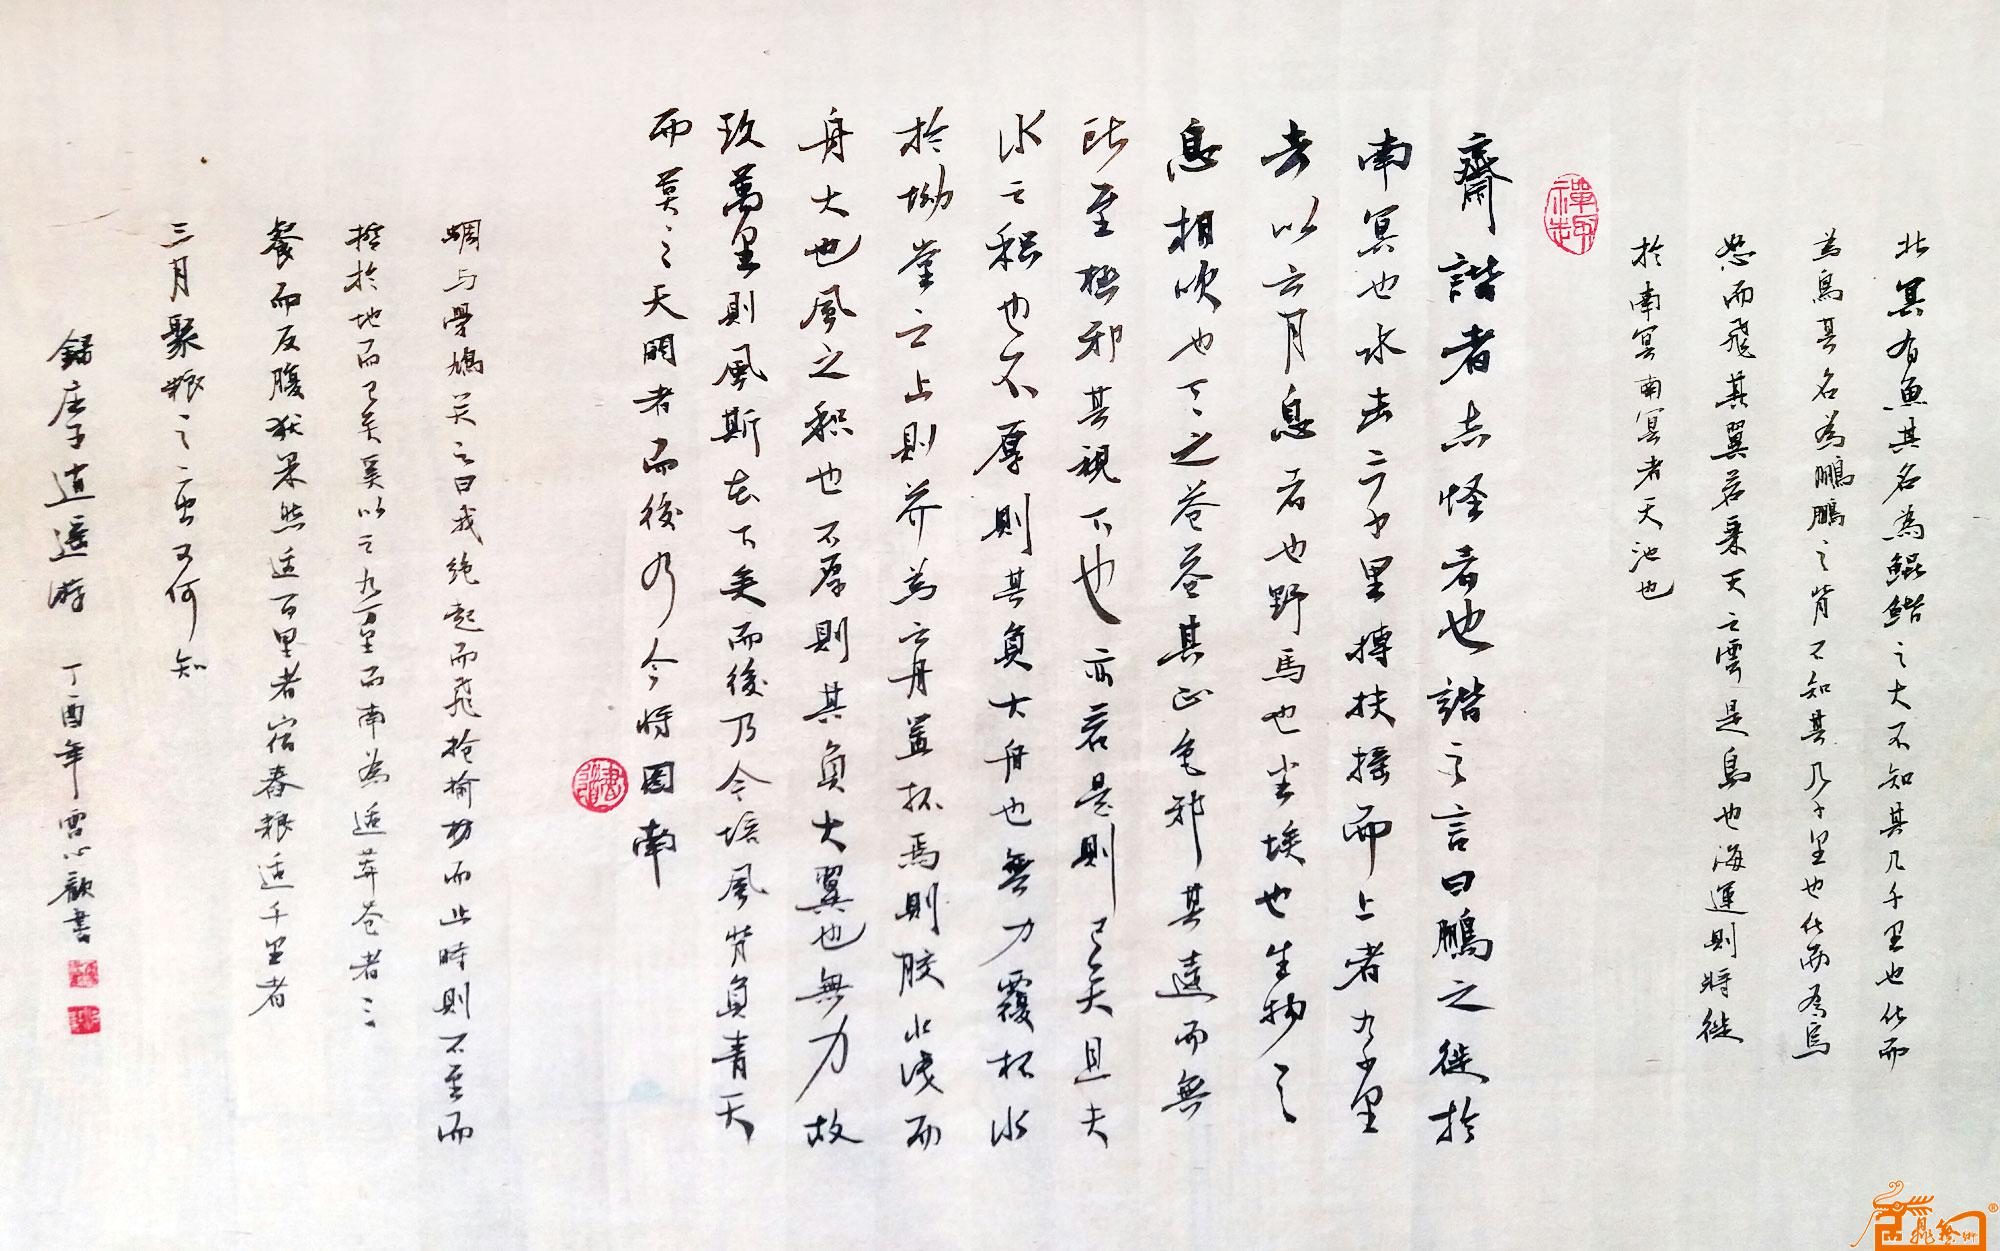 北冥有魚其名為鯤鯤之大不知其几千里也化而
為鳥其名為鵬鵬之背不知其几千里也化而為鳥
怒而飛其翼若垂天之雲是鳥也海運則將徙
於南冥南冥者天池也
齋諧者志怪者也諧之言曰鵬之徙於
南冥也水击三千里摶扶搖而上者九万里
去以六月息者也野馬也尘埃也生物之
息相吹也天之苍苍其正色邪其遠而無
所至極邪其視下也亦若是則已矣且夫
水之积也不厚則其負大舟也無力覆杯水
於坳堂之上則芥為之舟置杯焉則胶水浅而
舟大也風之积也不厚則其負大翼也無力故
玖萬里則風斯在下矣而後乃今培風背負青天
而莫之夭閼者而後乃今將图南
蜩与學鳩笑之曰我绝起而飛抢榆枋而止時則不至而
控於地而已矣奚以之九万里而南為适莽苍者三
餐而反腹犹果然适百里者宿舂粮适千里者
三月聚粮之二虫又何知
錄庄子逍遥游 丁酉年雪心歡書